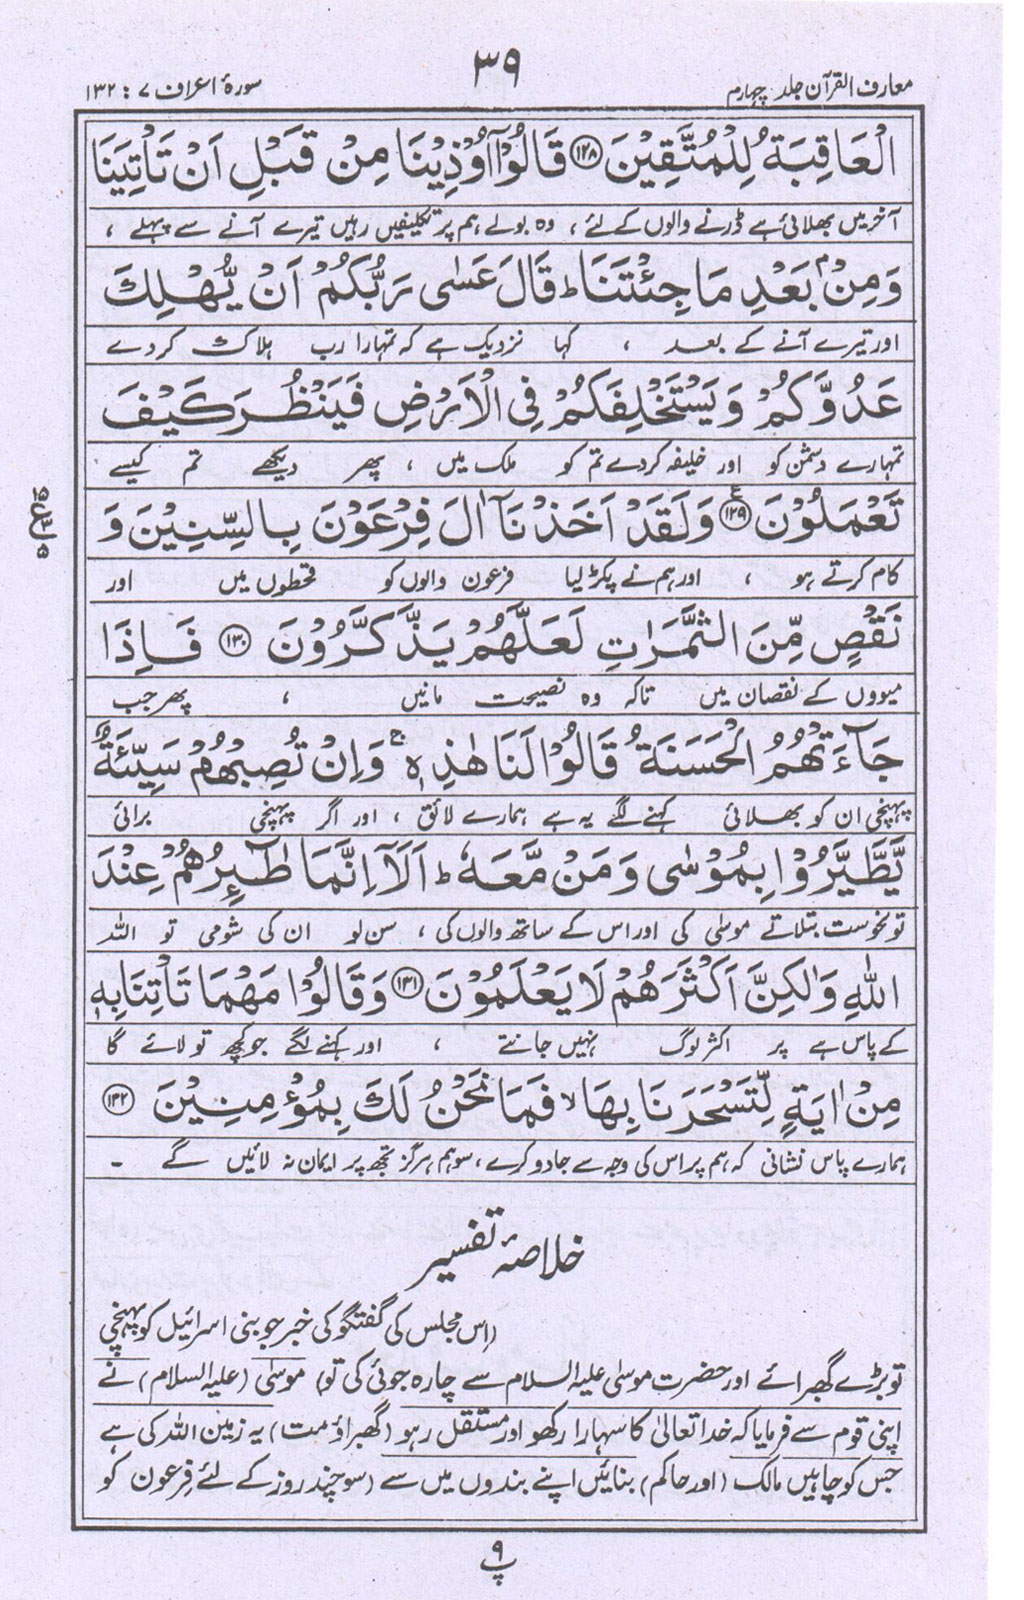 معارف القرآن جلد چہارم
۳۹
سورۂ اعراف ۷ : ۱۳۲
الْعَاقِبَةُ لِلْمُتَّقِيْنَ ﴿۱۲۸﴾ قَالُوْٓا اُوْذِيْنَا مِنْ قَبْلِ اَنْ تَاْتِيَنَا
آخر میں بھلائی ہے ڈرنے والوں کے لئے ، وہ بولے ہم پر تکلیفیں رہیں تیرے آنے سے پہلے ،
وَمِنْۢ بَعْدِ مَا جِئْتَنَا ؕ قَالَ عَسٰى رَبُّكُمْ اَنْ يُّهْلِكَ
اور تیرے آنے کے بعد ، کہا نزدیک ہے کہ تمہارا رب ہلاک کر دے
عَدُوَّكُمْ وَيَسْتَخْلِفَكُمْ فِى الْاَرْضِ فَيَنْظُرَ كَيْفَ
تمہارے دشمن کو اور خلیفہ کردے تم کو ملک میں ، پھر دیکھے تم کیسے
تَعْمَلُوْنَ ﴿۱۲۹﴾ ع وَلَقَدْ اَخَذْنَآ اٰلَ فِرْعَوْنَ بِالسِّنِيْنَ وَ
کام کرتے ہو ، اور ہم نے پکڑ لیا فرعون والوں کو قحطوں میں اور
نَقْصٍ مِّنَ الثَّمَرٰتِ لَعَلَّهُمْ يَذَّكَّرُوْنَ ﴿۱۳۰﴾ فَاِذَا
میووں کے نقصان میں تاکہ وہ نصیحت مانیں ، پھر جب
جَآءَتْهُمُ الْحَسَنَةُ قَالُوْا لَنَا هٰذِهٖ ۚ وَاِنْ تُصِبْهُمْ سَيِّئَةٌ
پہنچی ان کو بھلائی کہنے لگے یہ ہے ہمارے لائق ، اور اگر پہنچی برائی
يَّطَّيَّرُوْا بِمُوْسٰى وَمَنْ مَّعَهٗ ؕ اَلَآ اِنَّمَا طٰٓئِرُهُمْ عِنْدَ
تو نحوست بتلاتے موسٰی کی اور اس کے ساتھ والوں کی ، سن لو ان کی شومی تو اللہ
اللّٰهِ وَلٰكِنَّ اَكْثَرَهُمْ لَا يَعْلَمُوْنَ ﴿۱۳۱﴾ وَقَالُوْا مَهْمَا تَاْتِنَا بِهٖ
کے پاس ہے پر اکثر لوگ نہیں جانتے ، اور کہنے لگے جو کچھ تو لائے گا
مِنْ اٰيَةٍ لِّتَسْحَرَنَا بِهَا ۙ فَمَا نَحْنُ لَكَ بِمُؤْمِنِيْنَ ﴿۱۳۲﴾
ہمارے پاس نشانی کہ ہم پر اس کی وجہ سے جادو کرے ، سو ہم ہرگز تجھ پر ایمان نہ لائیں گے ۔
خلاصۂ تفسیر
(اس مجلس کی گفتگو کی خبر جو بنی اسرائیل کو پہنچی
تو بڑے گھبرائے اور حضرت موسیٰ علیہ السلام سے چارہ جوئی کی تو) موسٰی (علیہ السلام) نے
اپنی قوم سے فرمایا کہ خدا تعالیٰ کا سہارا رکھو اور مستقل رہو (گھبراؤ مت) یہ زمین اللہ کی ہے
جس کو چاہیں مالک (اور حاکم) بنائیں اپنے بندوں میں سے (سو چند روز کے لئے فرعون کو
پ ۹